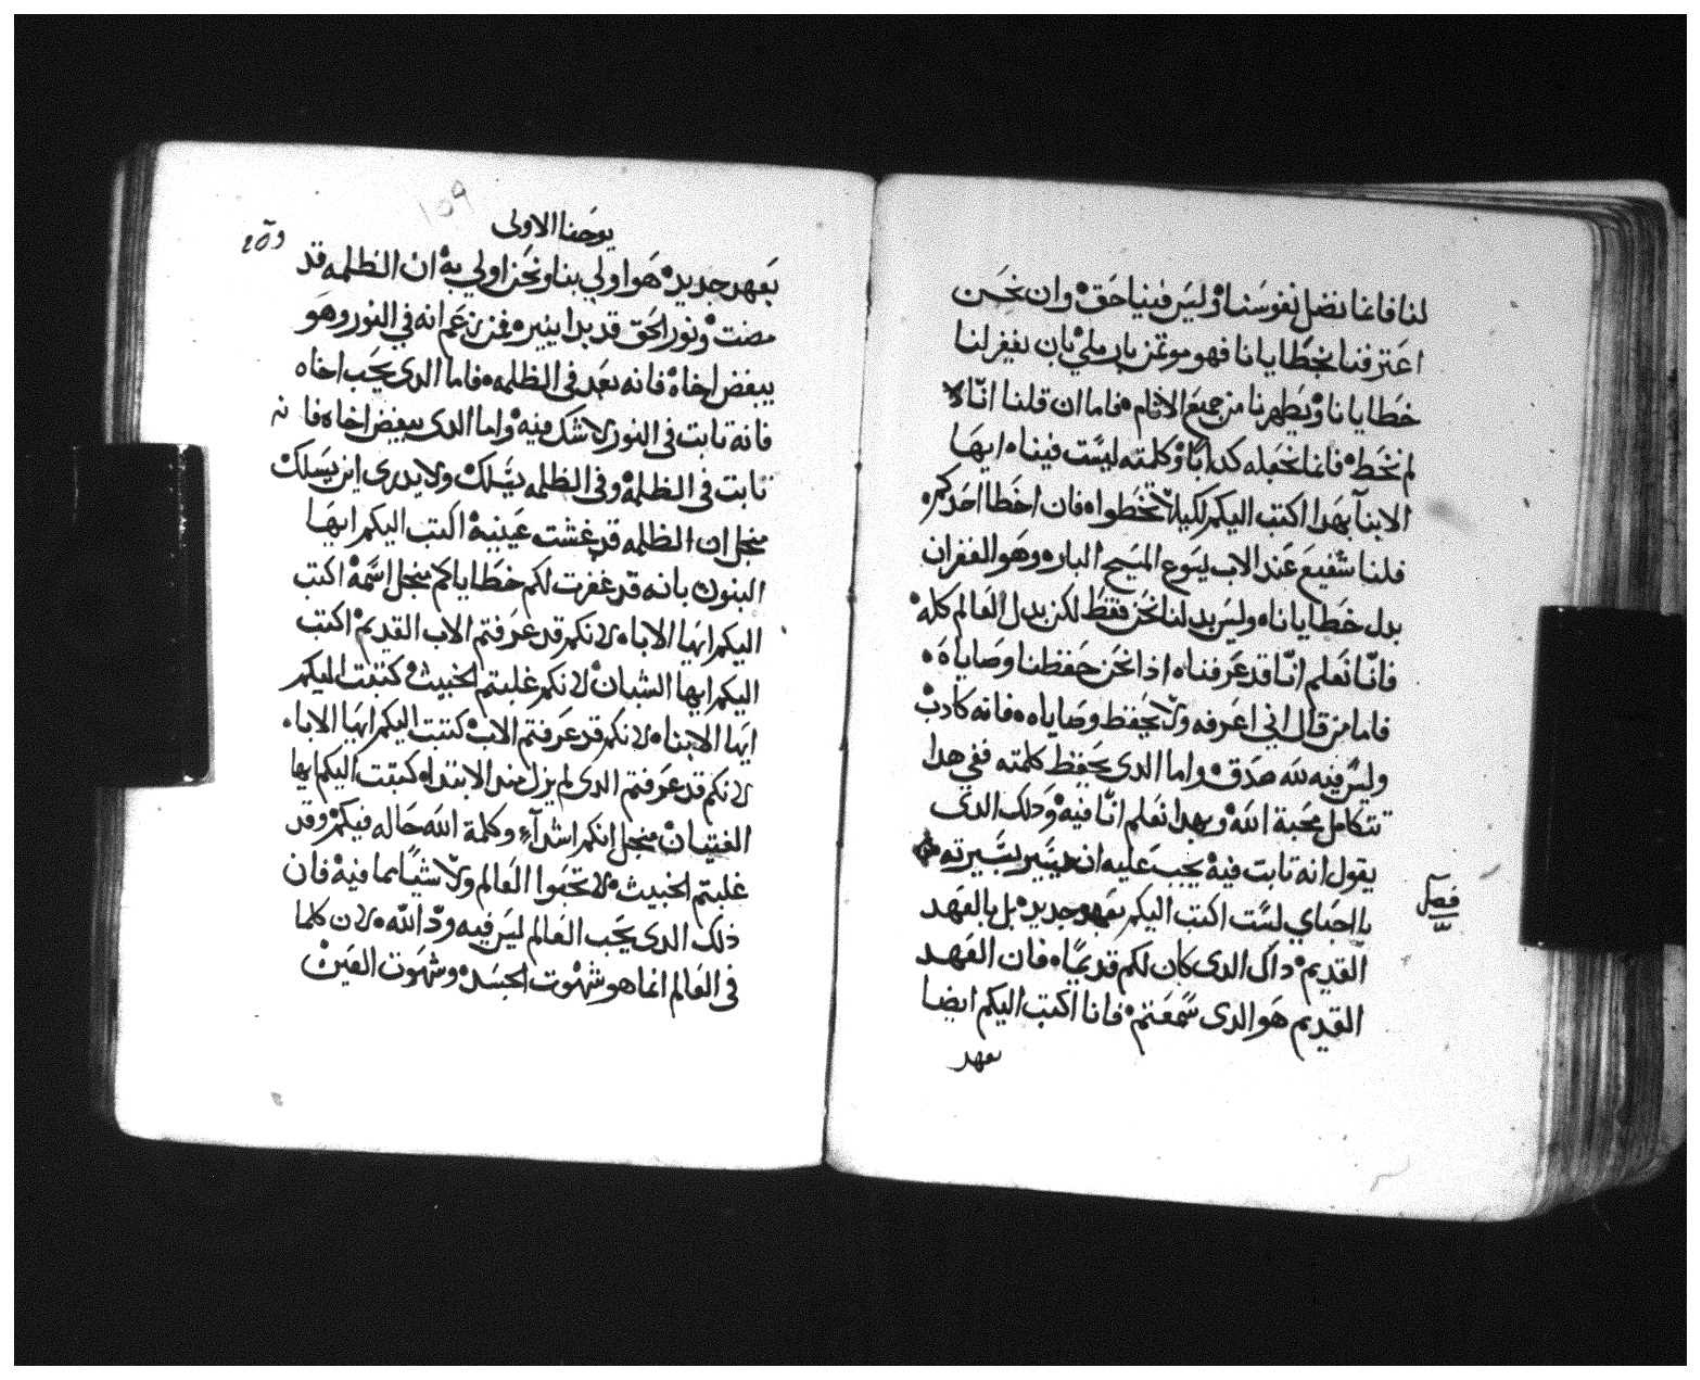 لنا فانما نضل نفوسنا وليس فينا حق وان نحن
اعترفنا بخطايانا فهو موتمن بار ملي بان يغفر لنا
خطايانا ويطهرنا من جميع الاثام فاما ان قلنا انّا
لم نخط فانما نجعله كدابًا وكلمته ليست فينا ايها
الابنآ بهدا اكتب اليكم لكيلا تخطوا فان اخطا احدكم
فلنا شفيع عند الاب يسوع المسيح الباره وهو الغفران
بدل خطايانا وليس بدلنا نحن فقط لكن بدل العالم كله
فانّا نعلم انّا قد عرفناه ادا نحن حفظنا وصاياه
فاما من قال اني اعرفه ولا يحفظ وصاياه فانه كادب
وليس فيه لله صدق واما الدى يحفظ كلمته ففي هدا
تتكامل محبة الله وبهدا نعلم انّا فيه ودلك الدى
يقول انه تابت فيه يجب عليه ان يسير بسيرته
فصل
يا احباي لست اكتب اليكم بعهد جديد بل بالعهد
القديم داك الدى كان لكم قديمًا فان العهد
القديم هو الدى سمعتم فانا اكتب اليكم ايضا
بعهد
١٥٩
يوحنا الاولى
بعهد جديد هو اولي بنا ونحن اولي به ان الظلمه قد
مضت ونور الحق قد بدا ينير فمن زعم انه في النور وهو
يبغض اخاه فانه بعد في الظلمه فاما الدى يحب اخاه
فانه تابت في النور لا شك فيه واما الدى يبغض اخاه فانه
تابت في الظلمه وفي الظلمه يسلك ولا يدرى اين يسلك
منجل ان الظلمه قد غشت عينيه اكتب اليكم ايها
البنون بانه قد غفرت لكم خطاياكم منجل اسمه اكتب
اليكم ايها الاباه لانكم قد عرفتم الاب القديم اكتب
اليكم ايها الشبان لانكم غلبتم الخبيث كتبت اليكم
ايها الابناه لانكم قد عرفتم الاب كتبت اليكم ايها الاباه
لانكم قد عرفتم الدى لم يزل مند الابتداه كتبت اليكم ايها
الفتيان منجل انكم اشدآء وكلمة الله حاله فيكم وقد
غلبتم الخبيث لا تحبوا العالم ولا شيًا مما فيه فان
ذلك الدى يحب العالم ليس فيه ودّ الله لان كلما
في العالم انما هو شهوت الجسد وشهوت العين